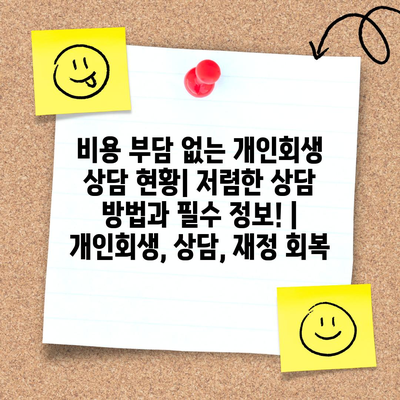 비용 부담 없는 개인회생
상담 현황| 저렴한 상담
방법과 필수 정보! |
개인회생, 상담, 재정 회복